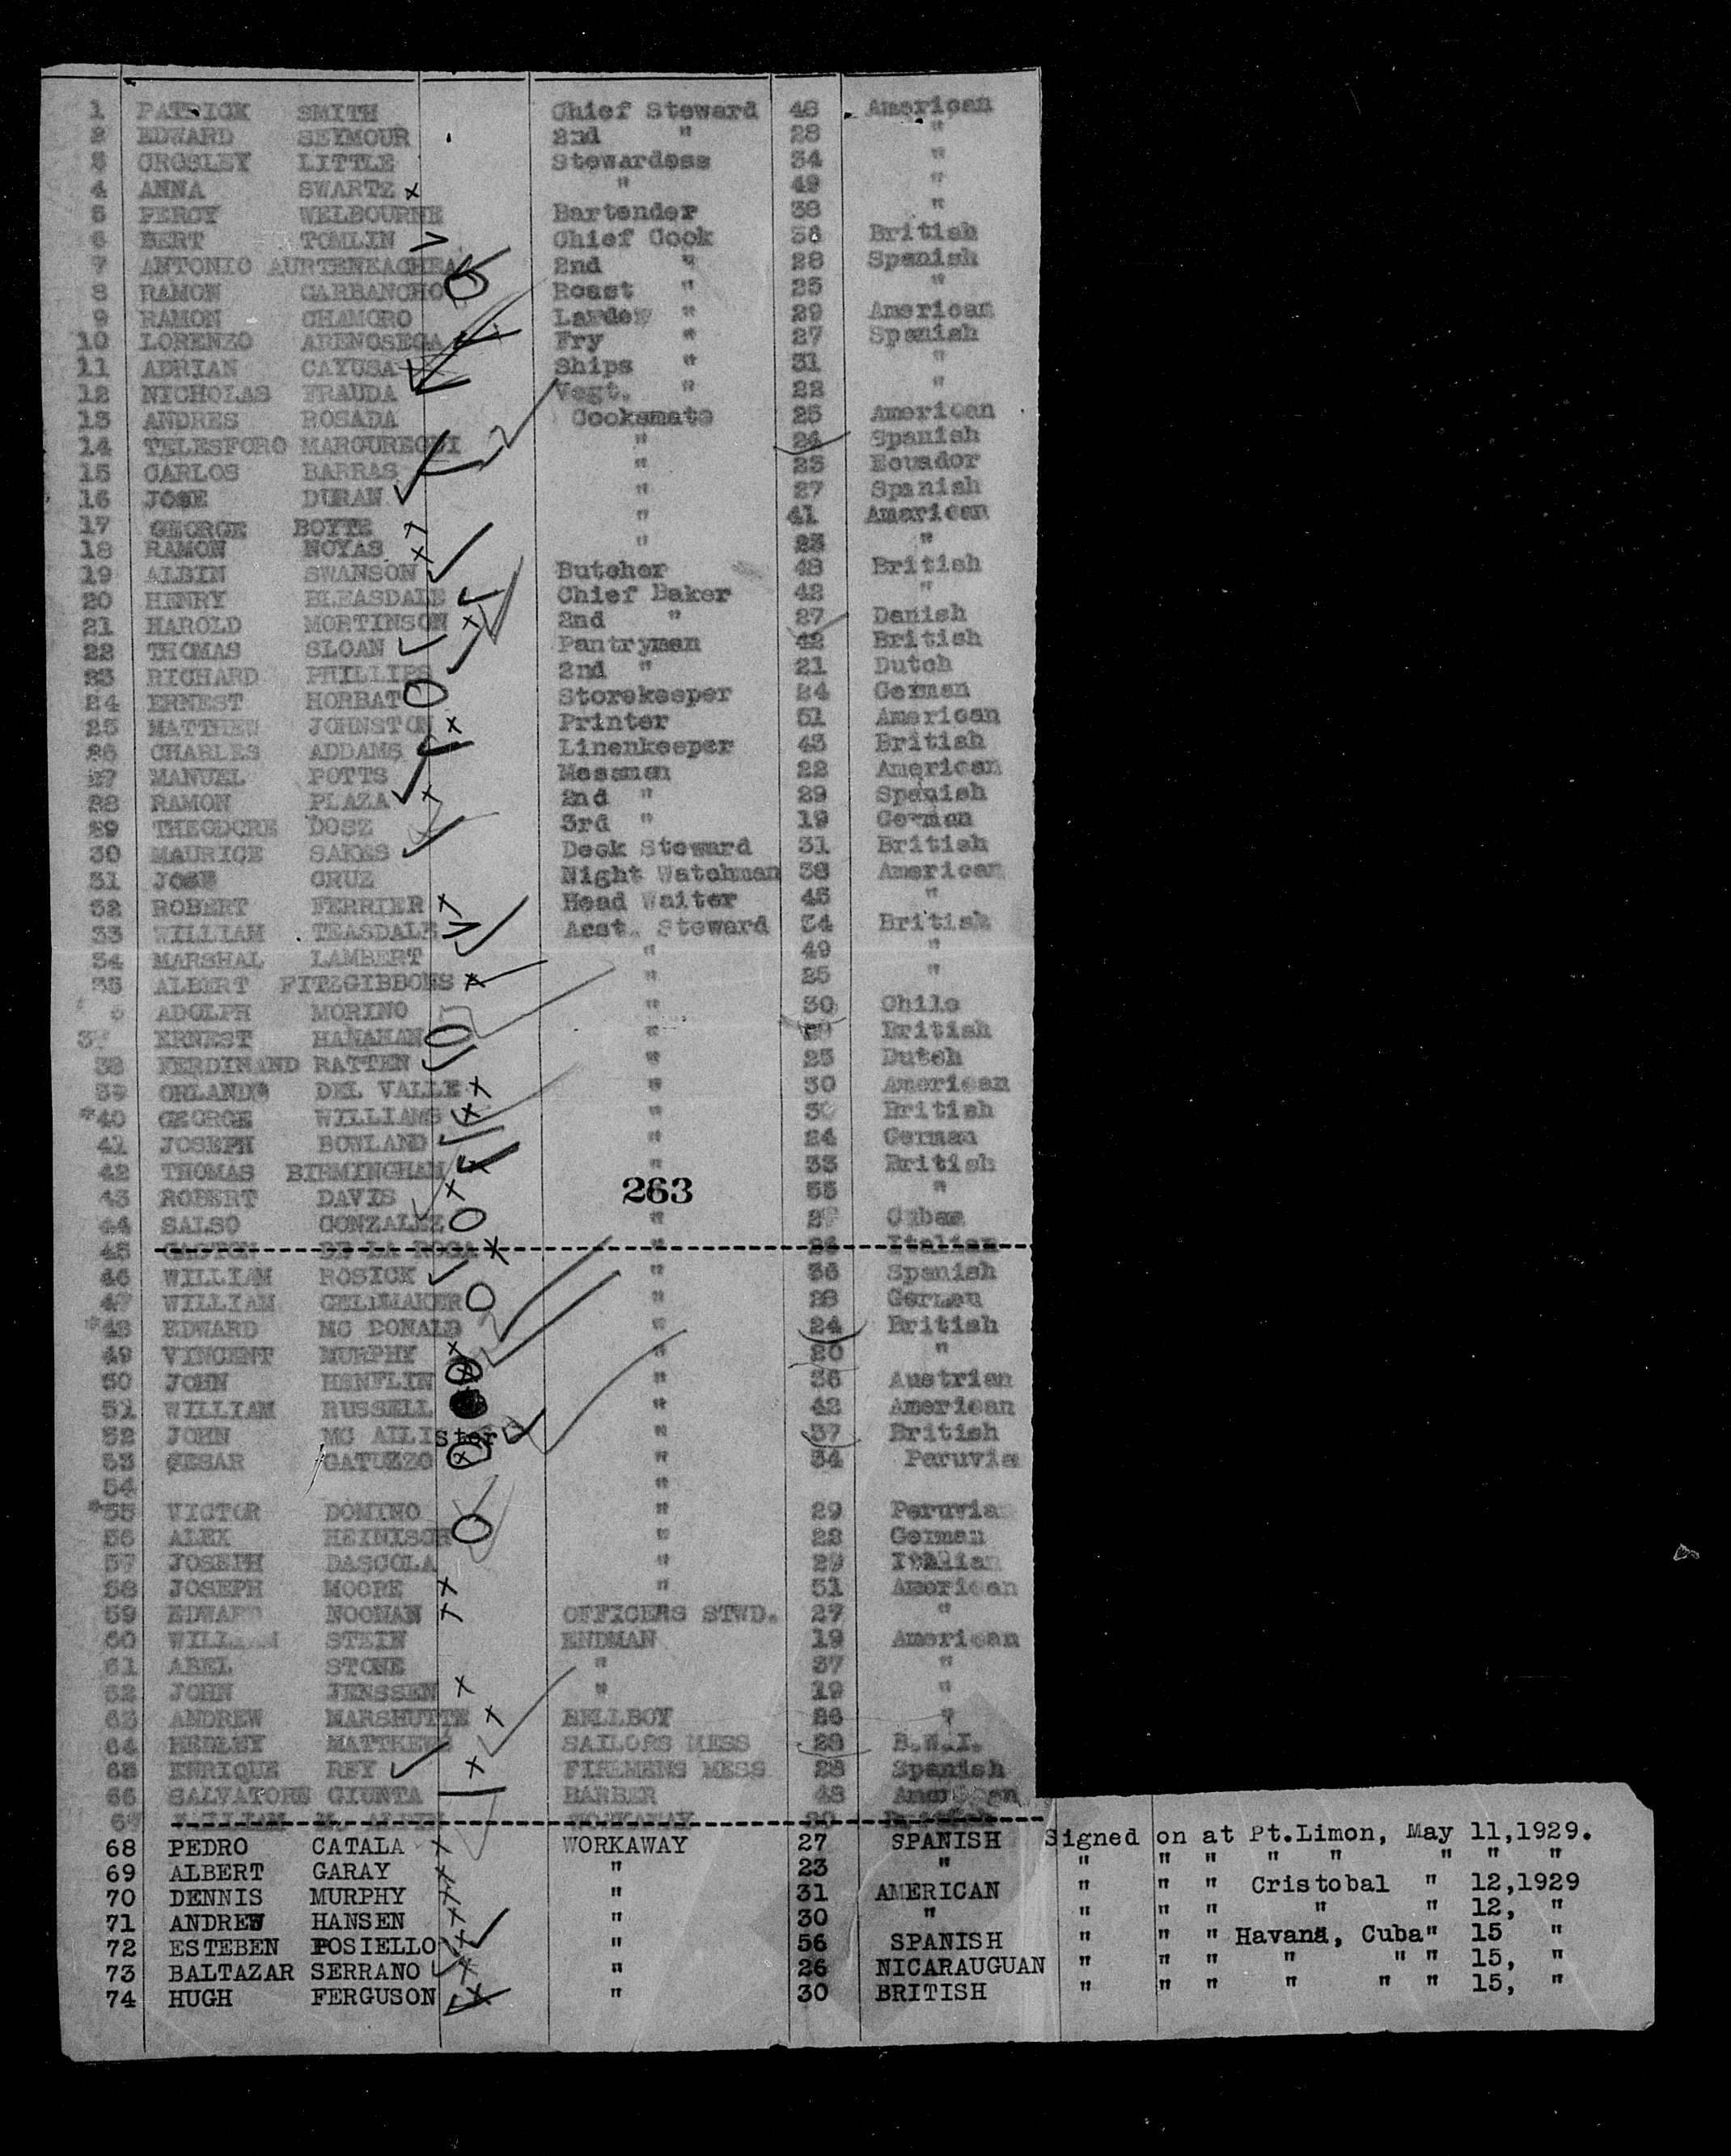 1 PATRICK SMITH Chief Steward 48 American
2 EDWARD SEYMOUR 2nd " 28 "
3 CROSLEY LITTLE Stewardess 34 "
4 ANNA SWARTZ x " 49 "
5 PERCY WELBOURNE Bartender 38 "
6 BERT TOMLIN Chief Cook 36 British
7 ANTONIO AURTENEACHEA 2nd " 28 Spanish
8 RAMON GARBANCHO Roast " 25 "
9 RAMON CHAMORO Larder " 29 American
10 LORENZO ARENOSEGA Fry " 27 Spanish
11 ADRIAN CAYUSA Ships " 31 "
12 NICHOLAS FRAUDA Vegt. " 22 "
13 ANDRES ROSADA Cooksmate 25 American
14 TELESFORO MARGUREGUI " 24 Spanish
15 CARLOS BARRAS " 23 Ecuador
16 JOSE DURAN " 27 Spanish
17 GEORGE BOYTE x " 41 American
18 RAMON NOYAS x " 23 "
19 ALBIN SWANSON Butcher 48 British
20 HENRY BLEASDALE Chief Baker 42 "
21 HAROLD MORTINSON x 2nd " 27 Danish
22 THOMAS SLOAN Pantryman 42 British
23 RICHARD PHILLIPS 2nd " 21 Dutch
24 ERNEST HORBAT Storekeeper 24 German
25 MATTHEW JOHNSTON x Printer 51 American
26 CHARLES ADDAMS Linenkeeper 43 British
27 MANUEL POTTS Messman 22 American
28 RAMON PLAZA x 2nd " 29 Spanish
29 THEODORE DOSZ 3rd " 19 German
30 MAURICE SAKES Deck Steward 31 British
31 JOSE CRUZ Night Watchman 38 American
32 ROBERT FERRIER x Head Waiter 45 "
33 WILLIAM TEASDALE Asst. Steward 34 British
34 MARSHAL LAMBERT " 49 "
35 ALBERT FITZGIBBONS x " 25 "
ADOLPH MORINO " 30 Chile
37 ERNEST HANAHAN " British
38 FERDINAND RATTEN " 25 Dutch
39 ORLANDO DEL VALLE x " 30 American
*40 GEORGE WILLIAMS x " British
41 JOSEPH BOWLAND " 24 German
42 THOMAS BIRMINGHAM x " 33 British
43 ROBERT DAVIS x 263 55 "
44 SALSO GONZALEZ " Cuban
45 GASTON DE LA ROCA x " 26 Italian
46 WILLIAM ROSICK " 36 Spanish
47 WILLIAM GELDMAKER " 28 German
*48 EDWARD MC DONALD " 24 British
49 VINCENT MURPHY x " 20 "
50 JOHN HENFLIN x " 36 Austrian
51 WILLIAM RUSSELL " 42 American
52 JOHN MC AILIster " 37 British
53 CESAR GATUZZO x " 34 Peruvia
54 "
*55 VICTOR DOMINO " 29 Peruvia
56 ALEX HEINISCH " 22 German
57 JOSEPH DASCOLA " 29 Italian
58 JOSEPH MOORE x " 51 American
59 EDWARD NOONAN x OFFICERS STWD. 27 "
60 WILLIAM STEIN ENDMAN 19 American
61 ABEL STONE " 37 "
62 JOHN JENSSEN x " 19 "
63 ANDREW MARSHUTTE x BELLBOY 26 "
64 HEDLEY MATTHEWS SAILORS MESS 28 B.W.I.
65 ENRIQUE REY x FIREMENS MESS 28 Spanish
66 SALVATORE GIUNTA BARBER 48 American
67 WILLIAM WORKAWAY British
68 PEDRO CATALA x WORKAWAY 27 SPANISH Signed on at Pt.Limon, May 11,1929.
69 ALBERT GARAY x " 23 " " " " " " " " "
70 DENNIS MURPHY x " 31 AMERICAN " " " Cristobal " 12,1929
71 ANDREW HANSEN x " 30 " " " " " " 12, "
72 ESTEBEN POSIELLO x " 56 SPANISH " " " Havana, Cuba" 15 "
73 BALTAZAR SERRANO x " 26 NICARAUGUAN " " " " " " 15, "
74 HUGH FERGUSON x " 30 BRITISH " " " " " " 15, "